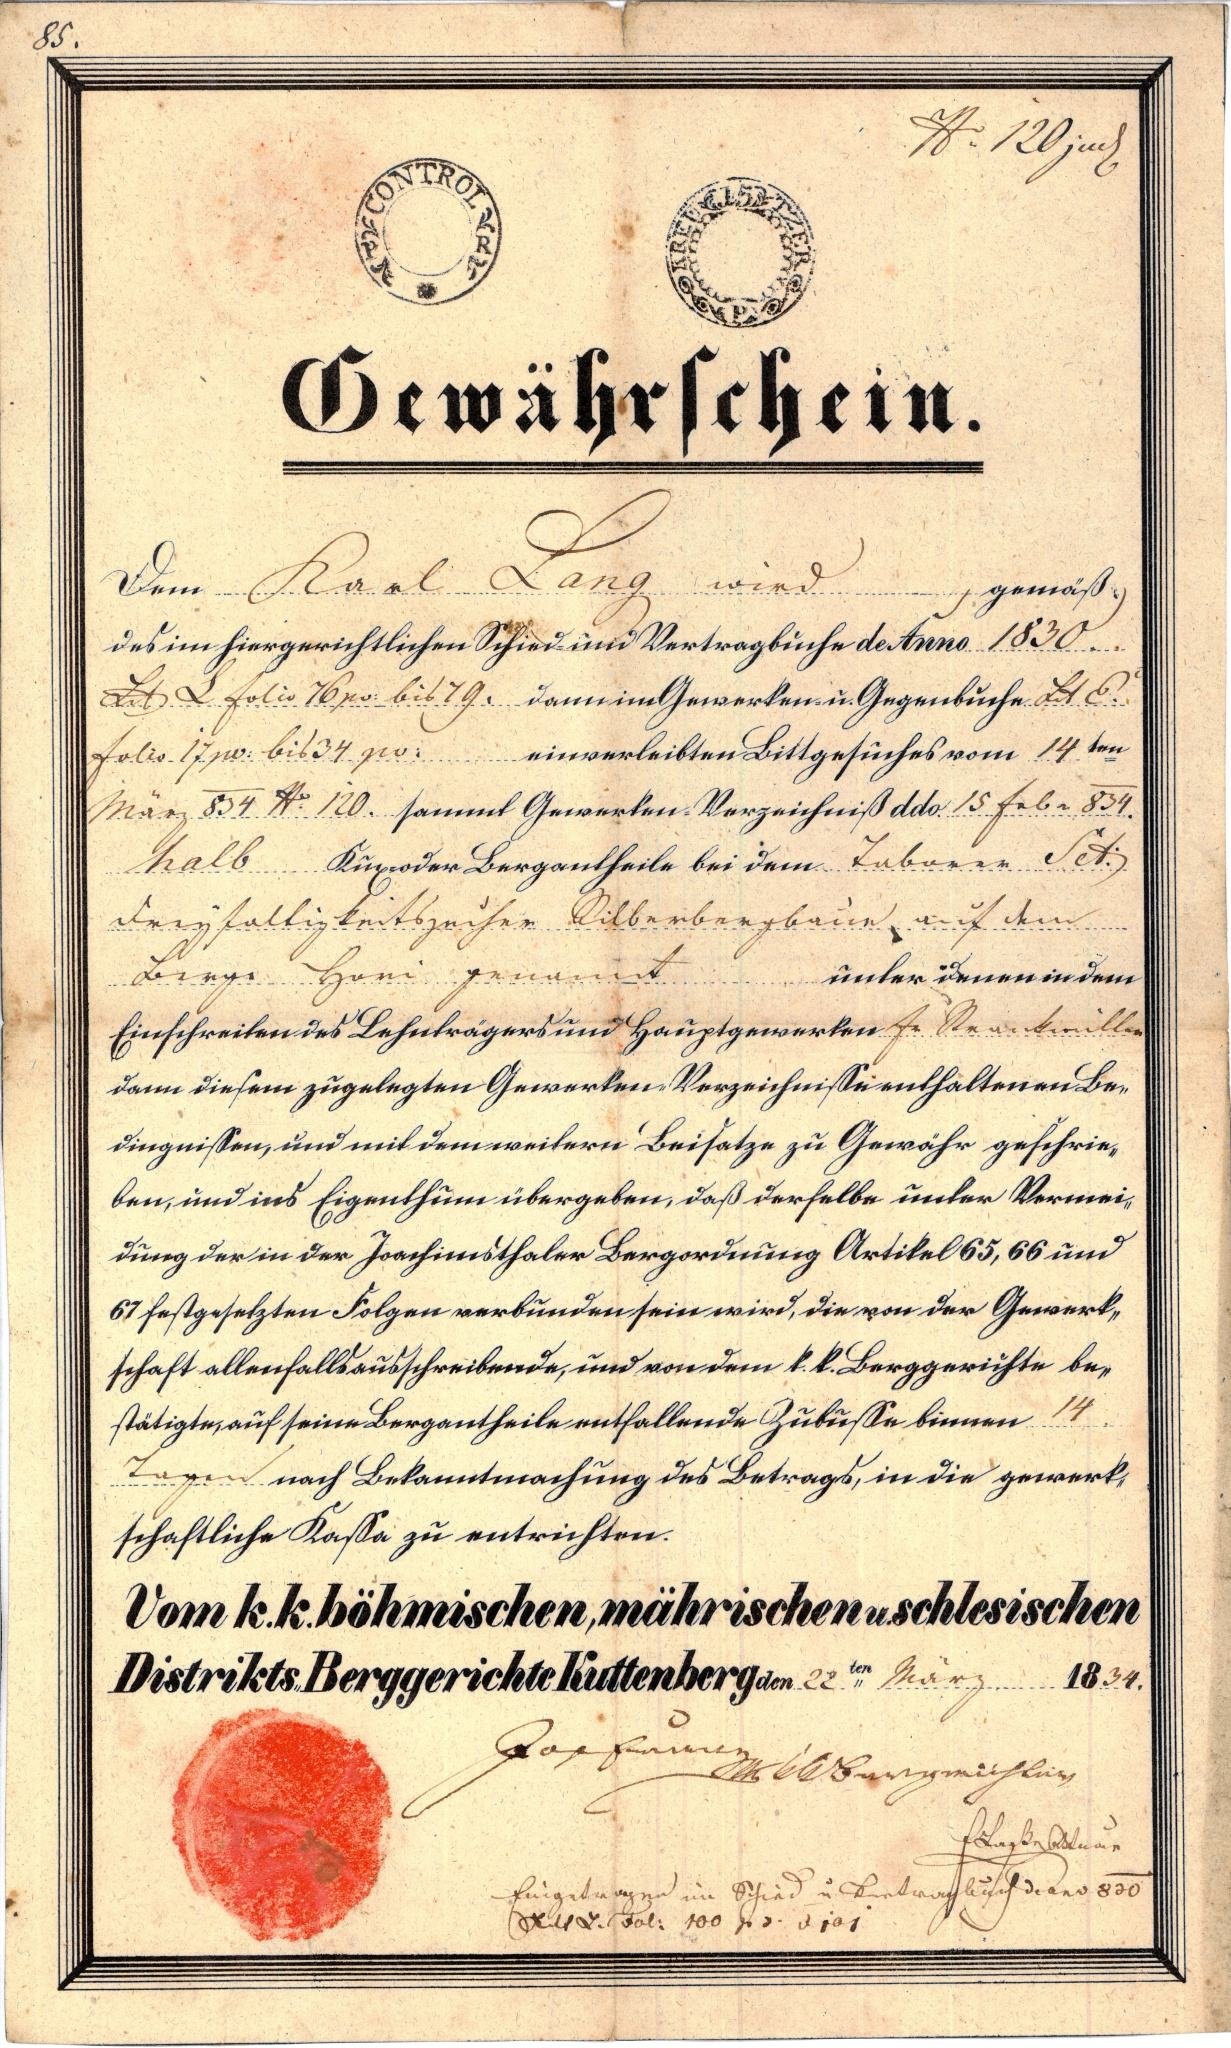 85.
No 120 jud
CONTROL
KREU 15 TZER
Gewährschein.
Dem Karl Lang wird, gemäß
des im hiergerichtlichen Schied- und Vertragbuche de Anno 1830
Lit L folio 76 po: bis 79. dann im Gewerken- u. Gegenbuche Lit C.
folio 17 po: bis 34 po: einverleibten Bittgesuches vom 14 ten
März 834 No 120. sammt Gewerken-Verzeichniß ddo. 15 Feb. 834.
halb Kux oder Bergantheile bei dem Taborer Sct:
Dreyfaltigkeitszecher Silberbergbaue auf dem
Berge Hori genannt unter denen in dem
Einschreiten des Lehnträgers und Hauptgewerken Fr.
dann diesem zugelegten Gewerken-Verzeichnisse enthaltenen Be-
dingnissen, und mit dem weitern Beisatze zu Gewähr geschrie-
ben, und ins Eigenthum übergeben, daß derselbe unter Vermei-
dung der in der Joachimsthaler Bergordnung Artikel 65, 66 und
67 festgesetzten Folgen verbunden sein wird, die von der Gewerk-
schaft allenfalls ausschreibende, und von dem k. k. Berggerichte be-
stätigte, auf seine Bergantheile entfallende Zubusse binnen 14
Tagen nach Bekanntmachung des Betrags, in die gewerk-
schaftliche Kassa zu entrichten.
Vom k. k. böhmischen, mährischen u. schlesischen
Distrikts-Berggerichte Kuttenberg den 22 ten März 1834.
Bergrichter
Eingetragen im Schied u Vertragbuch de ano 830
Lit L. Fol: 100